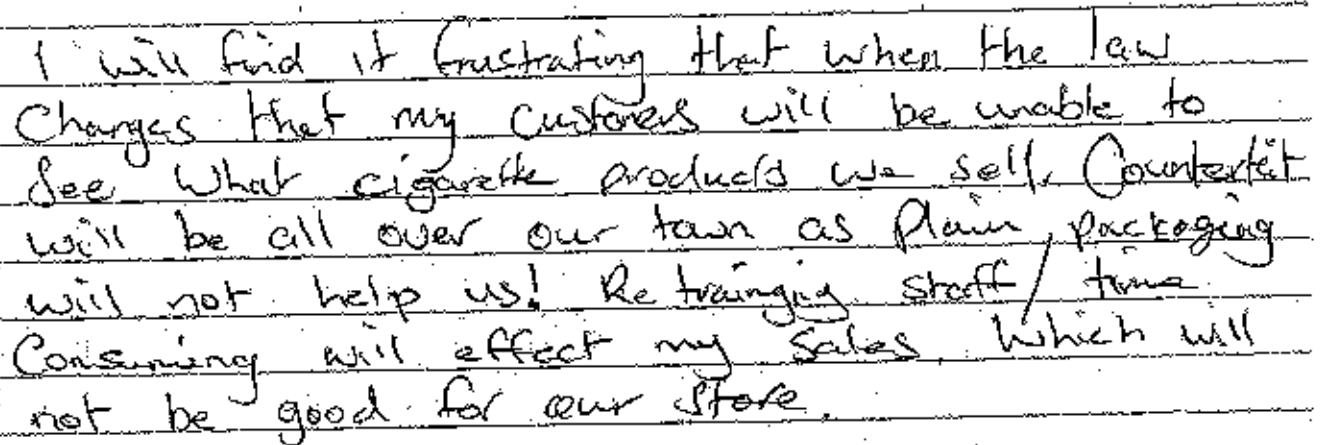 I will find it frustrating that when the law
Changes that my customers will be unable to
See what cigarette products we sell. Counterfeit
will be all over our town as Plain packaging
will not help us! Re trainging staff / time
Consuming will effect my sales. Which will
not be good for our store.